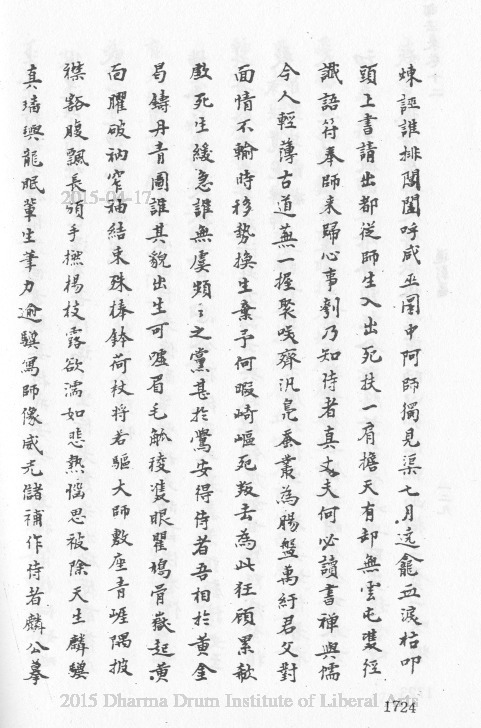 煉誣誰排閶闔呼咸巫圄中阿師獨見渠七月遶龕血淚枯叩
頭上書請出都從師生入出死扶一肩擔天有却無雲屯雙徑
識語符奉師来歸心事剖乃知侍者真丈夫何必讀書禪與儒
今人輕薄古道蕪一握聚嘆齊汎鳧蚕叢為腸盤萬紆君父對
面情不輸時移勢換生棄予何暇崎嶇死叛去為此狂顧累歔
欷死生緩急誰無虞頻〻之黨甚於鸒安得侍者吾相於黃金
曷鑄丹青圖誰其貌出生可噓眉毛觚稜雙眼瞿鳩骨嶽起黃
面臞破衲窄袖結束殊棒鉢荷杖将若驅大師數座青崖隅披
襟豁腹飄長鬚手撫楊枝露欲濡如悲熱惱思祓除天生麟驥
真璚輿龍眠輩生筆力逾驥寫師像咸光儲補作侍者麟公摹
1724
2015-04-17
2015 Dharma Drum Institute of Liberal Arts